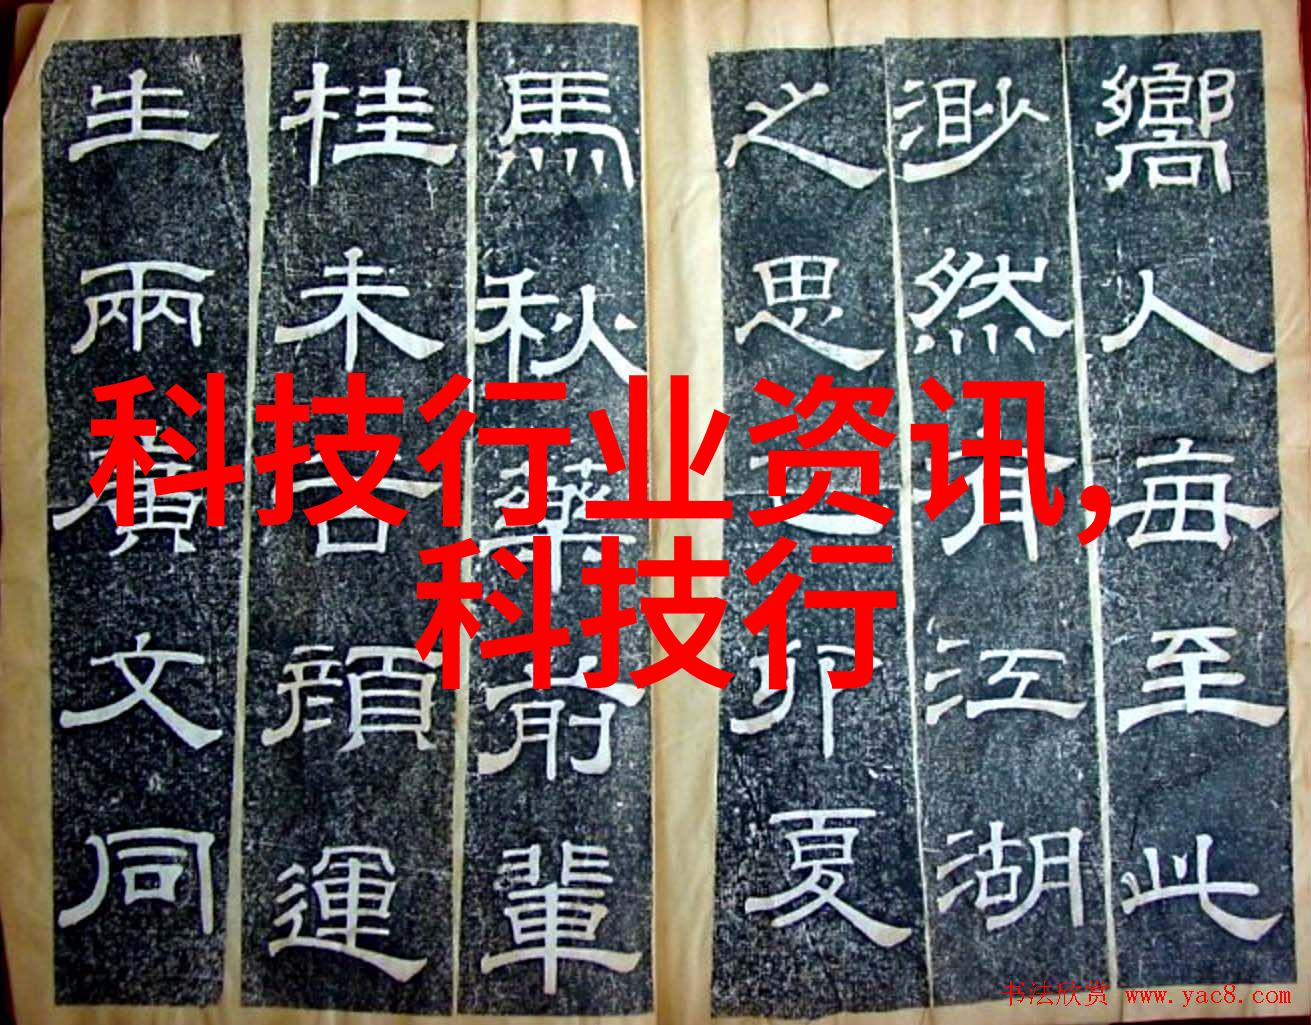 嚮人每至此
渺然有江湖
之思卯夏
馬秋藥前輩
桂未谷顏運
生兩廣文同
科技行业资讯,
科技行
书法欣赏 www.yac8.com